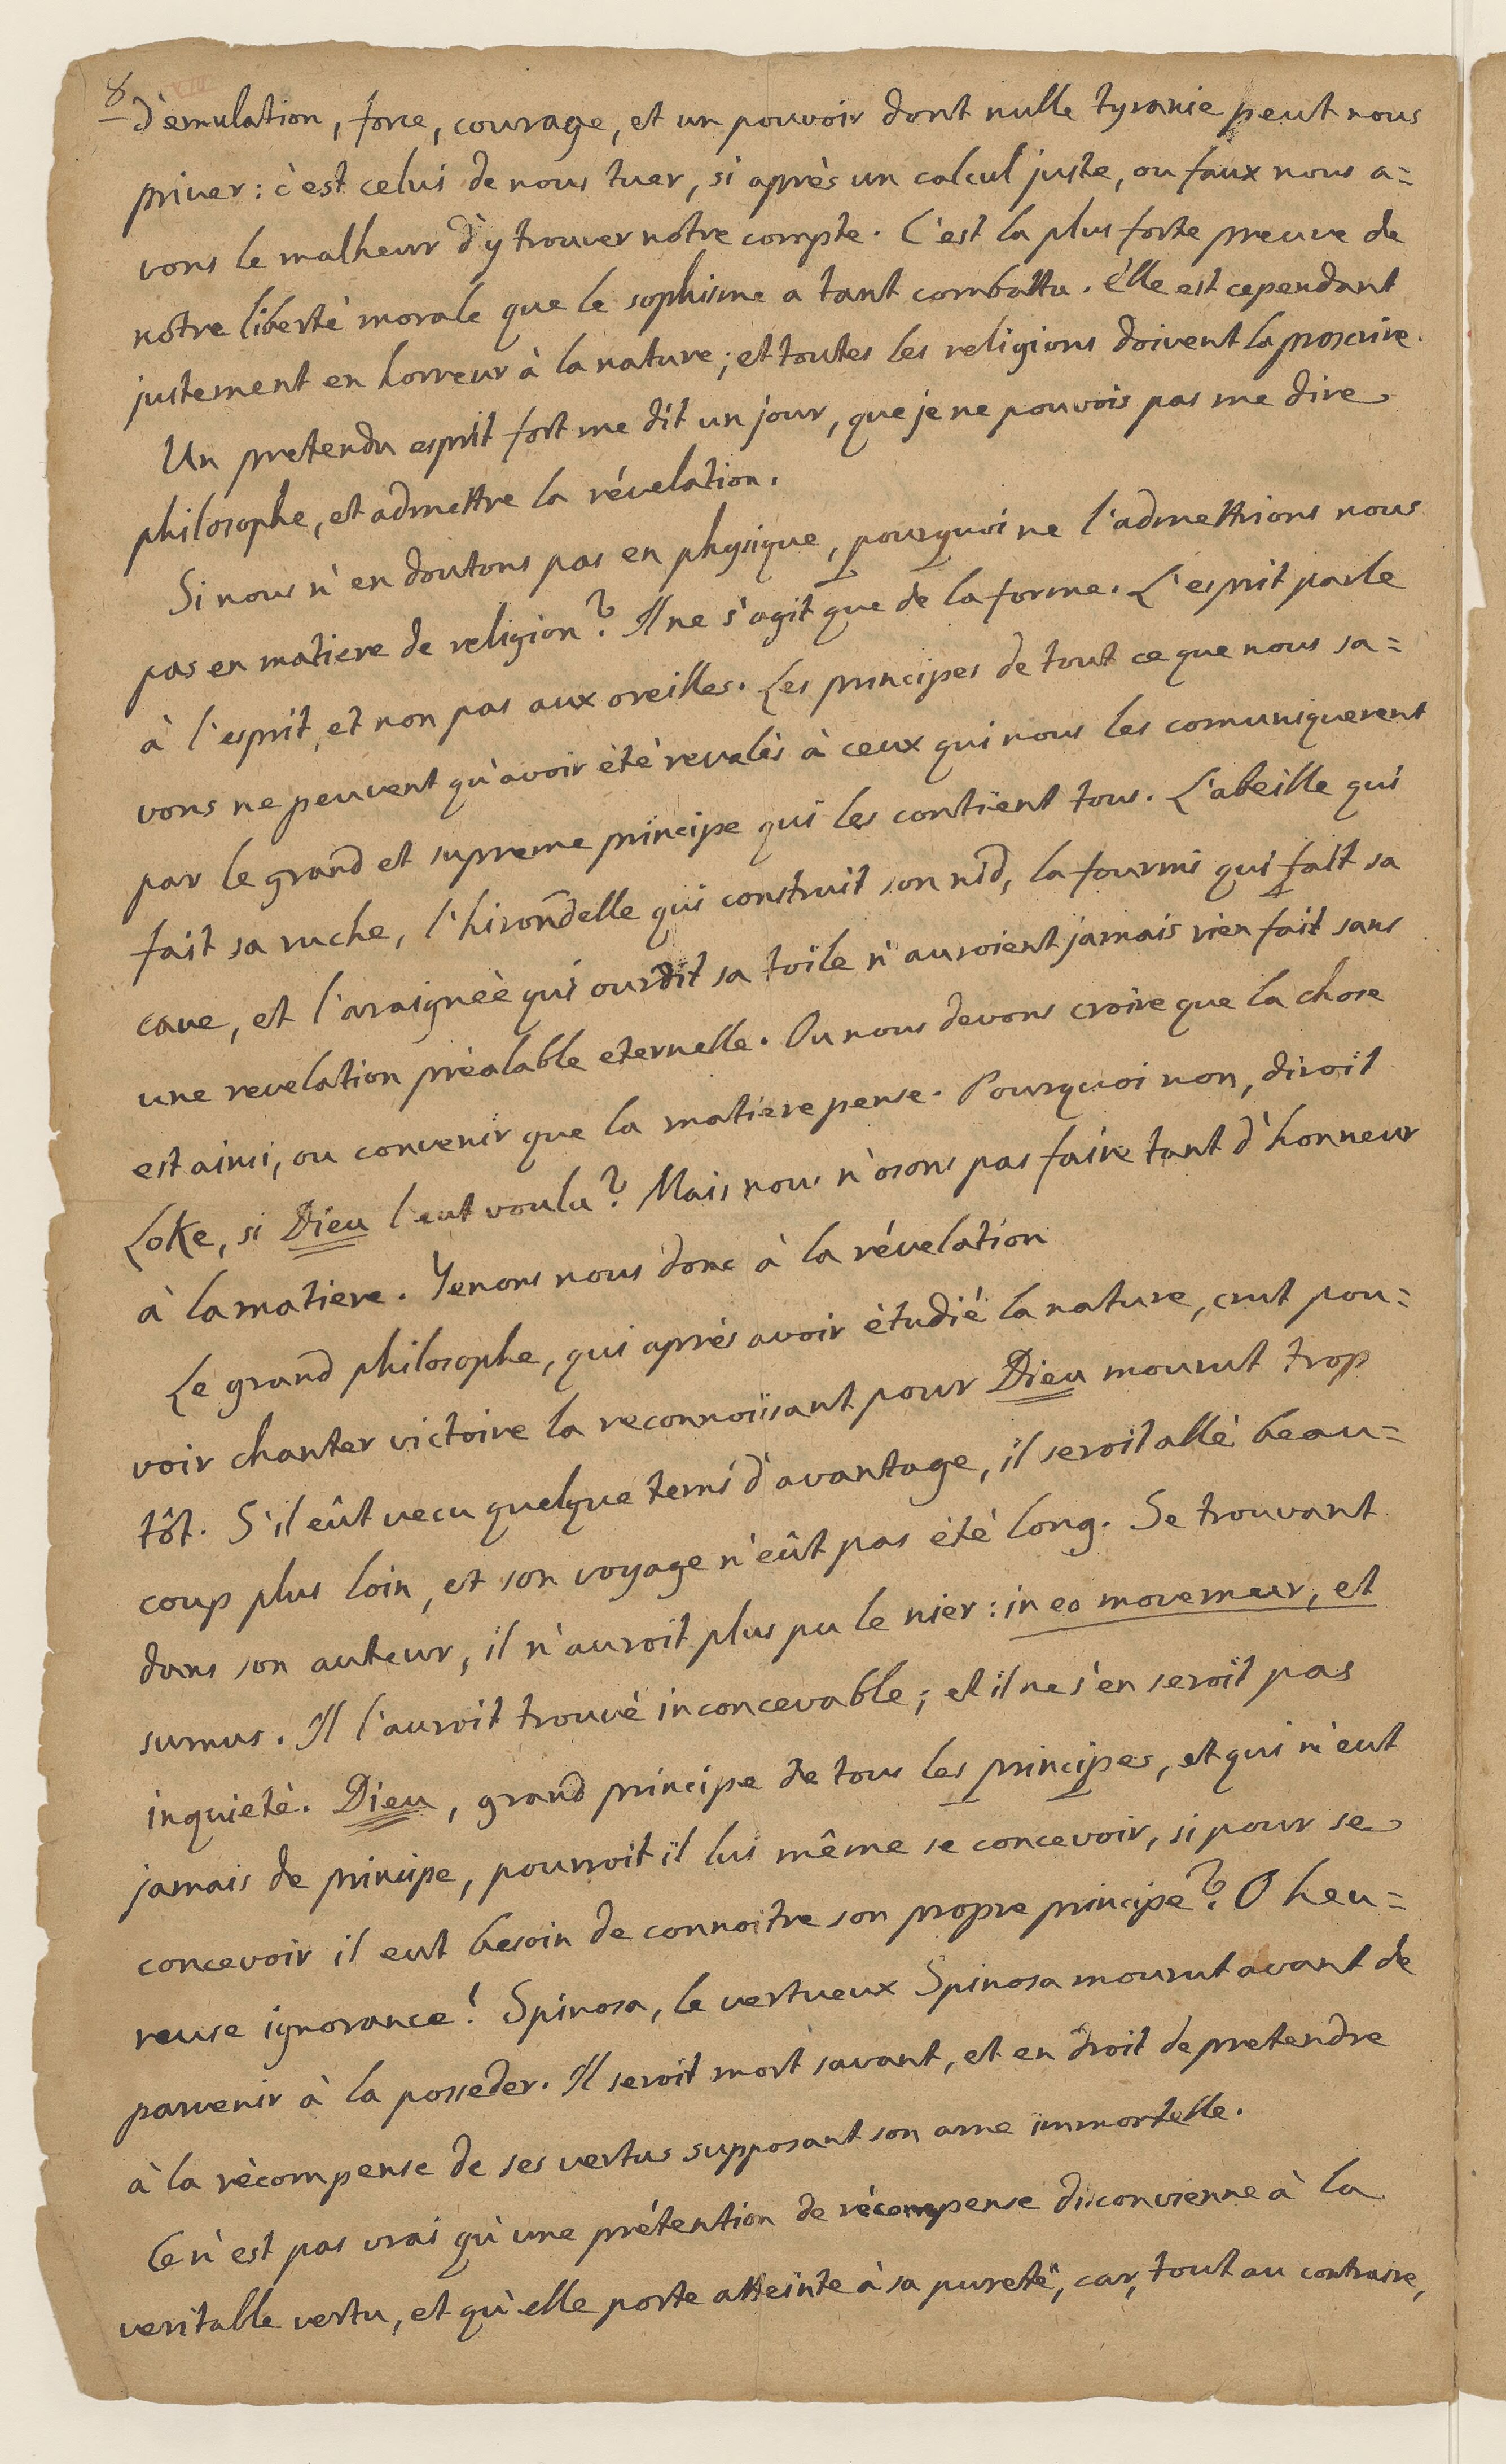 8
d'èmulation, force, courage, et un pouvoir dont nulle tyranie peut nous
priver: c'est celui de nous tuer, si après un calcul juste, ou faux nous a=
vons le malheur d'y trouver nôtre compte. C'est la plus forte preuve de
nôtre liberté morale que le sophisme a tant combattu. Elle est cependant
justement en horreur à la nature; et toutes les religions doivent la proscrire.
Un pretendu esprit fort me dit un jour, que je ne pouvois pas me dire
philosophe, et admettre la révelation.
Si nous n'en doutons pas en physique, pourquoi ne l'admettrions nous
pas en matiere de religion? Il ne s'agit que de la forme. L'esprit parle
à l'esprit, et non pas aux oreilles. Les principes de tout ce que nous sa=
vons ne peuvent qu'avoir été revelés à ceux qui nous les comuniquerent
par le grand et supreme principe qui les contient tous. L'abeille qui
fait sa ruche, l'hirondelle qui construit son nid, la fourmi qui fait sa
cave, et l'araignèe qui ourdit sa toile n'auroient jamais rien fait sans
une revelation préalable eternelle. Ou nous devons croire que la chose
est ainsi, ou convenir que la matiere pense. Pourquoi non, diroit
Loke, si Dieu l'eut voulu? Mais nous n'osons pas faire tant d'honneur
à la matiere. Tenons nous donc à la révelation
Le grand philosophe, qui aprés avoir étudié la nature, crut pou=
voir chanter victoire la reconnoissant pour Dieu mourut trop
tôt. S'il eût vecu quelque tems d'avantage, il seroit allè beau=
coup plus loin, et son voyage n'eût pas été long. Se trouvant
dans son auteur, il n'auroit plus pu le nier: in eo movemeur, et
sumus. Il l'auroit trouvé inconcevable; et il ne s'en seroit pas
inquietè. Dieu, grand principe de tous les principes, et qui n'eut
jamais de principe, pourroit il lui même se concevoir, si pour se
concevoir il eut besoin de connoitre son propre principe? O heu=
reuse ignorance! Spinosa, le vertueux Spinosa mourut avant de
parvenir à la posseder. Il seroit mort savant, et en droit de pretendre
à la rècompense de ses vertus supposant son ame immortelle.
Ce n'est pas vrai qu'une prétention de récompense disconvienne à la
veritable vertu, et qu'elle porte atteinte à sa pureté, car, tout au contraire,